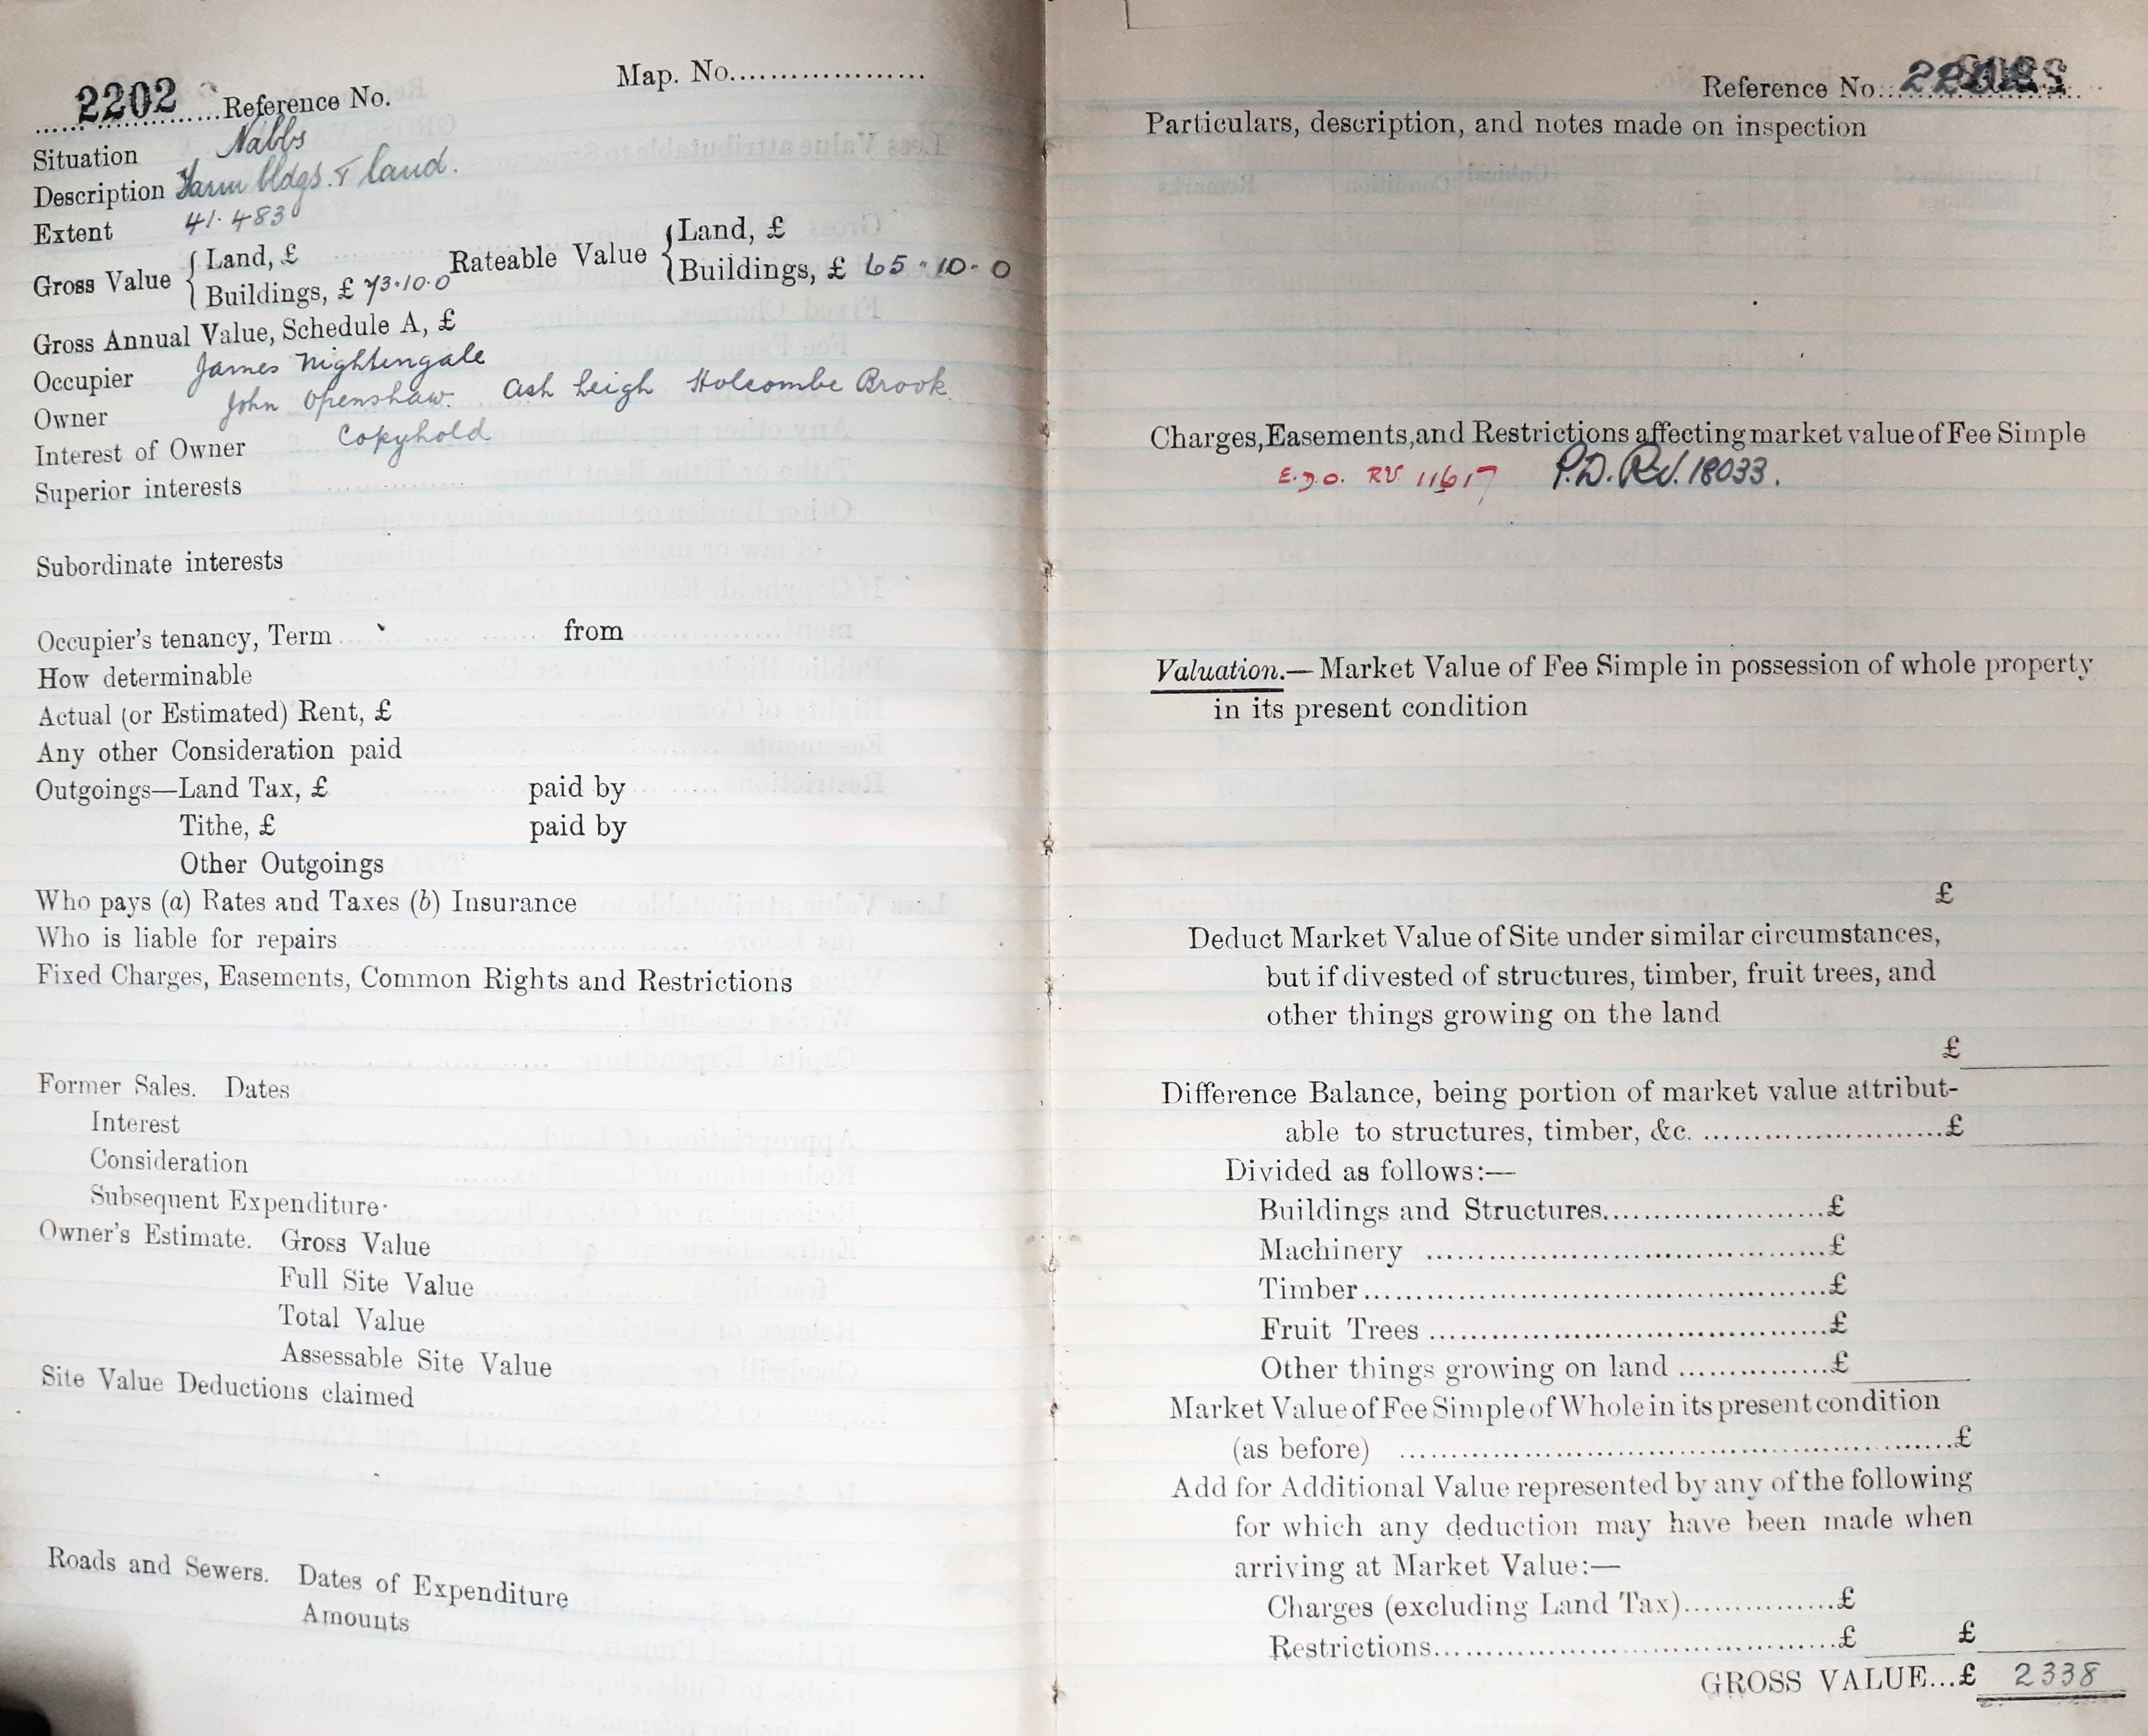 Map. No....................
2202 Reference No.
Situation Nabbs
Description Farm bldgs. & land.
Extent 41.483
Gross Value { Land, £
Buildings, £ 73.10.0
Rateable Value { Land, £
Buildings, £ 65-10-0
Gross Annual Value, Schedule A, £
Occupier James Nightingale
Owner John Openshaw. Ash Leigh Holcombe Brook
Interest of Owner Copyhold
Superior interests
Subordinate interests
Occupier's tenancy, Term from
How determinable
Actual (or Estimated) Rent, £
Any other Consideration paid
Outgoings—Land Tax, £ paid by
Tithe, £ paid by
Other Outgoings
Who pays (a) Rates and Taxes (b) Insurance
Who is liable for repairs
Fixed Charges, Easements, Common Rights and Restrictions
Former Sales. Dates
Interest
Consideration
Subsequent Expenditure
Owner's Estimate. Gross Value
Full Site Value
Total Value
Assessable Site Value
Site Value Deductions claimed
Roads and Sewers. Dates of Expenditure
Amounts
Reference No.
Particulars, description, and notes made on inspection
Charges, Easements, and Restrictions affecting market value of Fee Simple
RV. 11617 P.D. Rv. 18033.
Valuation.—Market Value of Fee Simple in possession of whole property
in its present condition
£
Deduct Market Value of Site under similar circumstances,
but if divested of structures, timber, fruit trees, and
other things growing on the land
£
Difference Balance, being portion of market value attribut-
able to structures, timber, &c. ........................£
Divided as follows:—
Buildings and Structures......................£
Machinery ......................................£
Timber............................................£
Fruit Trees ......................................£
Other things growing on land ...............£
Market Value of Fee Simple of Whole in its present condition
(as before) ......................................................£
Add for Additional Value represented by any of the following
for which any deduction may have been made when
arriving at Market Value:—
Charges (excluding Land Tax)...............£
Restrictions......................................£ £
GROSS VALUE...£ 2338